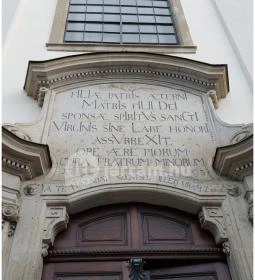 FILIÆ PATRIS ÆTERNI
MATRIS FILII DEI
SPONSÆ SPIRITVS SANCTI
VIRGINIS SINE LABE HONORI
ASSVRREXIT
OPE ÆRE PIORUM
CURA FRATRUM MINORUM